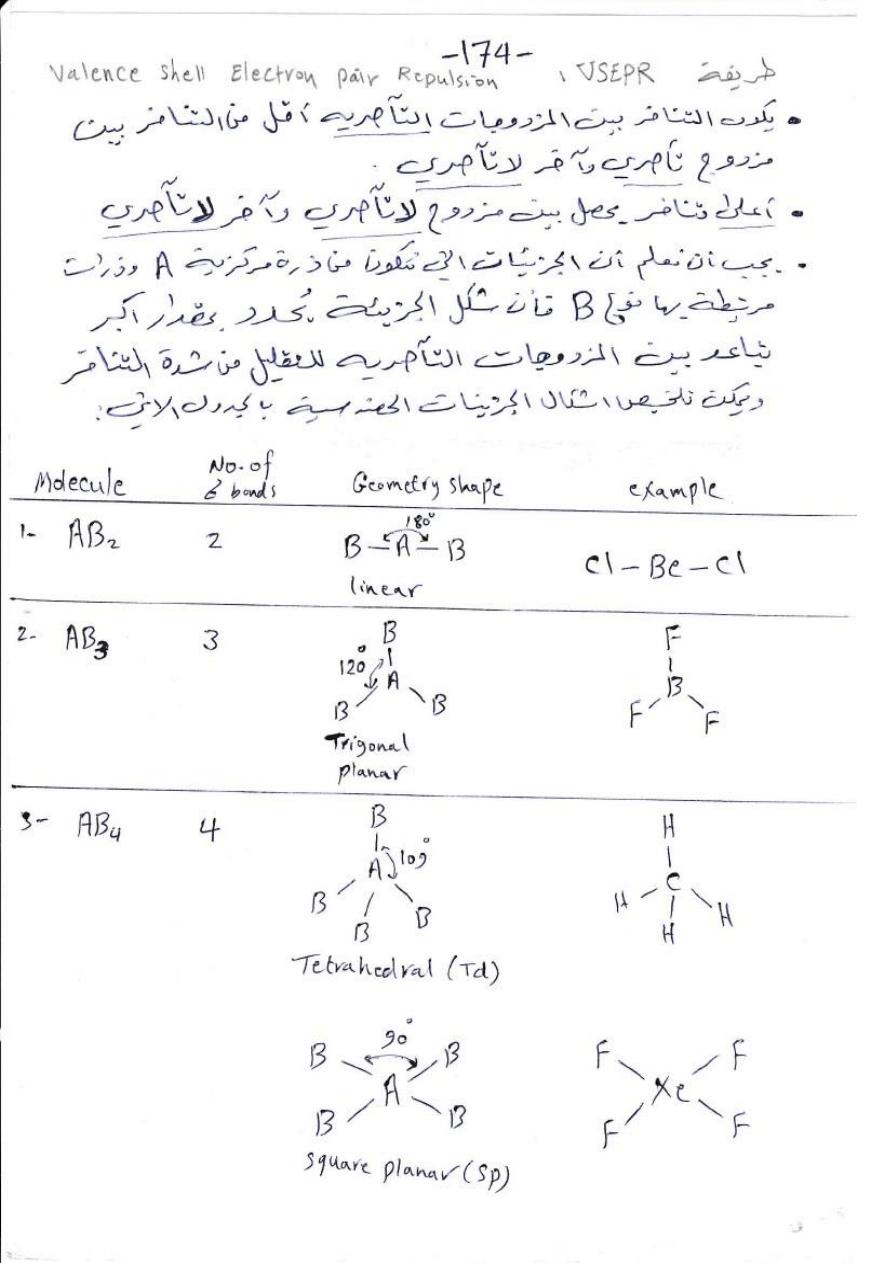 -174-
طريقة VSEPR ، Valence Shell Electron pair Repulsion
• يكون التنافر بين المزدوجات التآصريه أقل من التنافر بين
مزدوج تآصري وآخر لاتآصري .
• أعلى تنافر يحصل بين مزدوج لاتآصري وآخر لاتآصري
• يجب أن نعلم أن الجزيئات التي تتكون من ذرة مركزية A وذرات
مرتبطة بها نوع B فأن شكل الجزيئة يُحدد بمقدار اكبر
تباعد بين المزدوجات التآصريه للتقليل من شدة التنافر
ويمكن تلخيص اشكال الجزيئات الهندسية بالجدول الاتي:
Molecule No. of б bonds Geometry shape example
1- AB₂ 2 B-A-B 180° Cl-Be-Cl
linear
2- AB₃ 3 B F
120° A B
B B F F
Trigonal
planar
3- AB₄ 4 B H
A 109° C
B B B H H H
Tetrahedral (Td)
90°
B B F F
A Xe
B B F F
square planar (Sp)